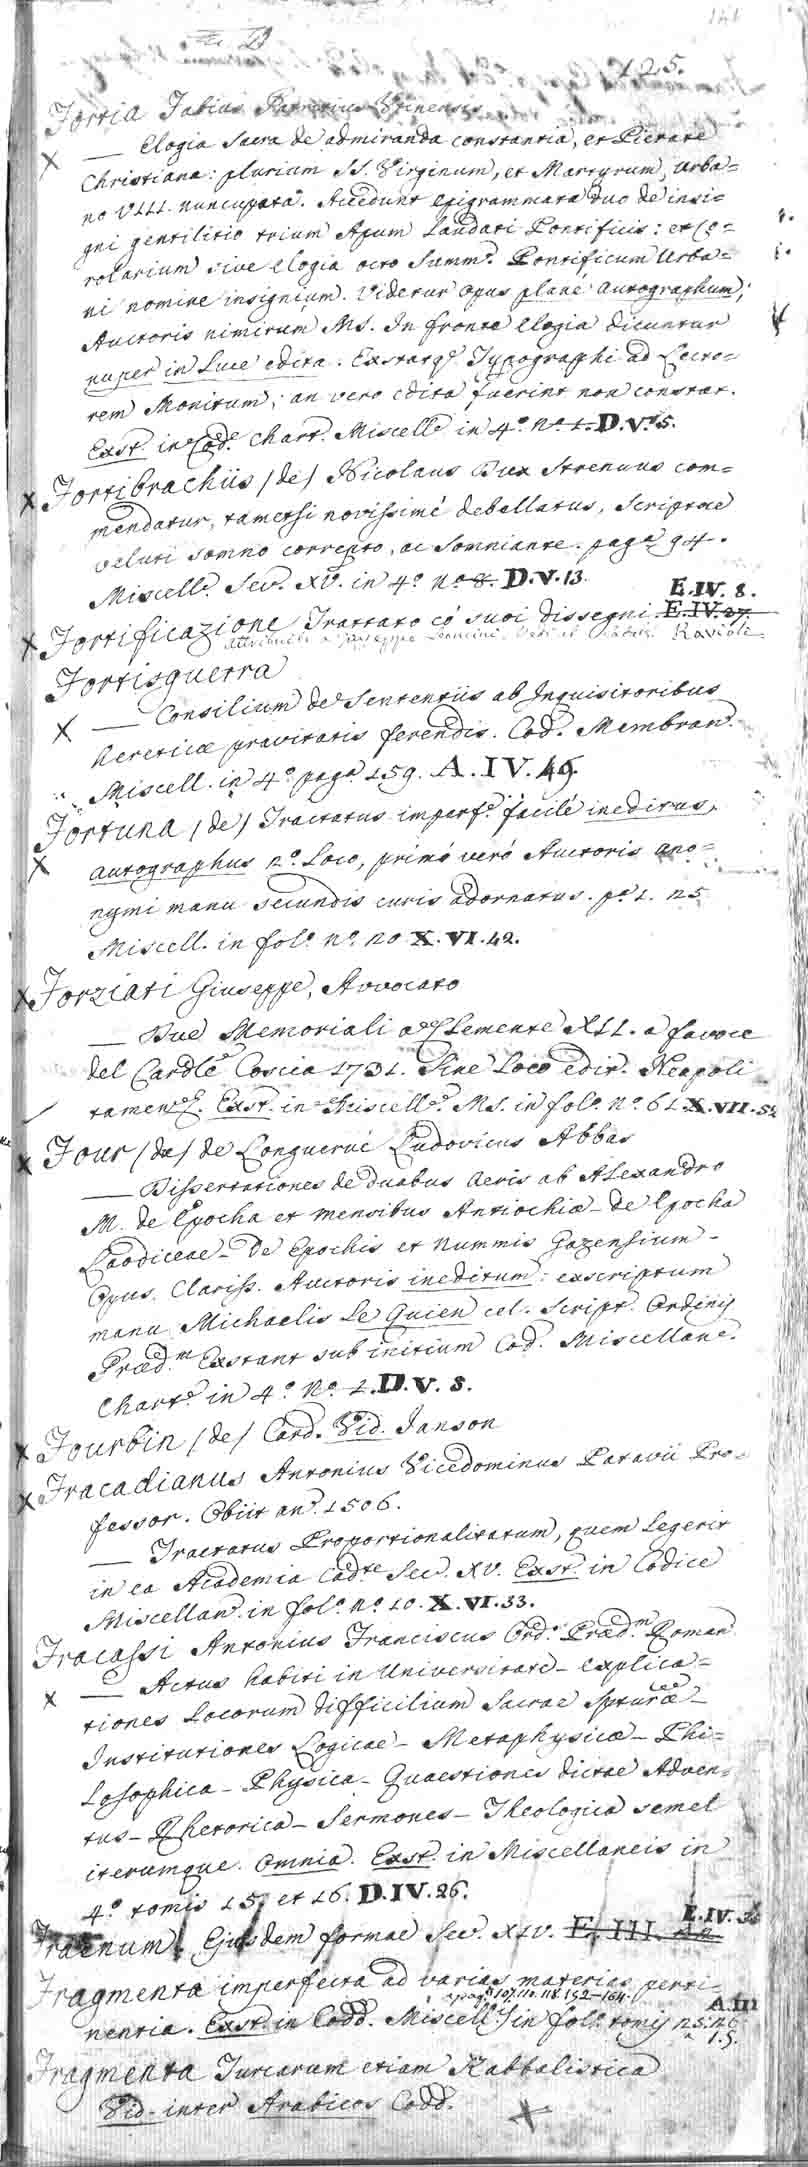 125.
Fortia Fabius Patritius Utinensis
— Elogia Sacra de admiranda constantia, et Pietate
Christiana: plurium SS. Virginum, et Martyrum, Urba=
no VIII. nuncupata. Accedunt epigrammata duo de insi=
gni gentilitio trium Apum Laudati Pontificis: et Co=
rolarium sive elogia octo Summ. Pontificum Urba=
ni nomine insignium. Videtur Opus planè autographum;
Auctoris nimirum MS. In fronte Elogia dicuntur
nuper in Luce edita. Extatq. Typographi ad Lecto=
rem Monitum; an vero edita fuerint non constat.
Exst. in Cod. Chart. Miscell. in 4.º n.º 1. D.V.5.
X Fortibrachiis (de) Nicolaus Dux strenuus com=
mendatur, tametsi novissimè debellatus, Scriptore
veluti somno correpto, ac somniante. pag. 94.
Miscell. Sec. XV. in 4.º n.º 8. D.V.13.
E.IV.8.
X Fortificazione Trattato có suoi dissegni. E.IV.27.
Ravioli
Fortisguerra
X — Consilium de Sententiis ab Inquisitoribus
hereticæ pravitatis ferendis. Cod. Membran.
Miscell. in 4.º pag. 159. A.IV.49.
Fortuna (de) Tractatus imperf. facilè ineditus,
X autographus 2.º Loco, primó veró Auctoris ano=
nymi manu secundis curis adornatus. p. 1. 25
Miscell. in fol. n.º 20 X.VI.42.
X Forziati Giuseppe, Avvocato
— Due Memoriali a Clemente XII. a favore
del Cardle Coscia 1731. Sine Loco edit. Neapoli
tamen. Exst. in Miscell. MS. in fol. n.º 61. X.VII.52
X Four (du) de Longueruè Ludovicus Abbas
— Dissertationes de duabus aeris ab Alexandro
M. de Epocha et mensibus Antiochiæ - de Epocha
Laodiceae - De Epochis et Nummis Gazensium -
Opus. Clariss. Auctoris ineditum: exscriptum
manu Michaelis Le Quien cel. Script. Ordinis
Præd.m Exstant sub initium Cod. Miscellane.
Chart. in 4.º n.º 1. D.V.8.
X Fourbin (de) Card. Vid. Janson
X Fracadianus Antonius Vicedominus Patavii Pro=
fessor. Obiit an. 1506.
— Tractatus Proportionalitatum, quem Legerit
in ea Academia Cadte Sec. XV. Exst. in Codice
Miscellan. in fol. n.º 10. X.VI.33.
Fracassi Antonius Franciscus Ord. Præd.m Roman
X — Actus habiti in Universitate - explica=
tiones Locorum difficilium Sacrae Spturæ -
Institutiones Logicae - Metaphysicæ - Phi=
Losophica - Physica - Quaestiones dictae Adven=
tus - Rhetorica - Sermones - Theologica semel
iterumque. Omnia. Exst. in Miscellaneis in
4.º tomis 15. et 16. D.IV.26.
Fraenum. Ejusdem formae Sec. XIV. E.III.
Fragmenta imperfecta ad varias materias perti=
nentia. Exst. in Codd. Miscell. in fol. tomis 25. 26
A.III
1.5.
Fragmenta Turcarum etiam Kabbalistica
Vid. inter Arabicos Codd. X